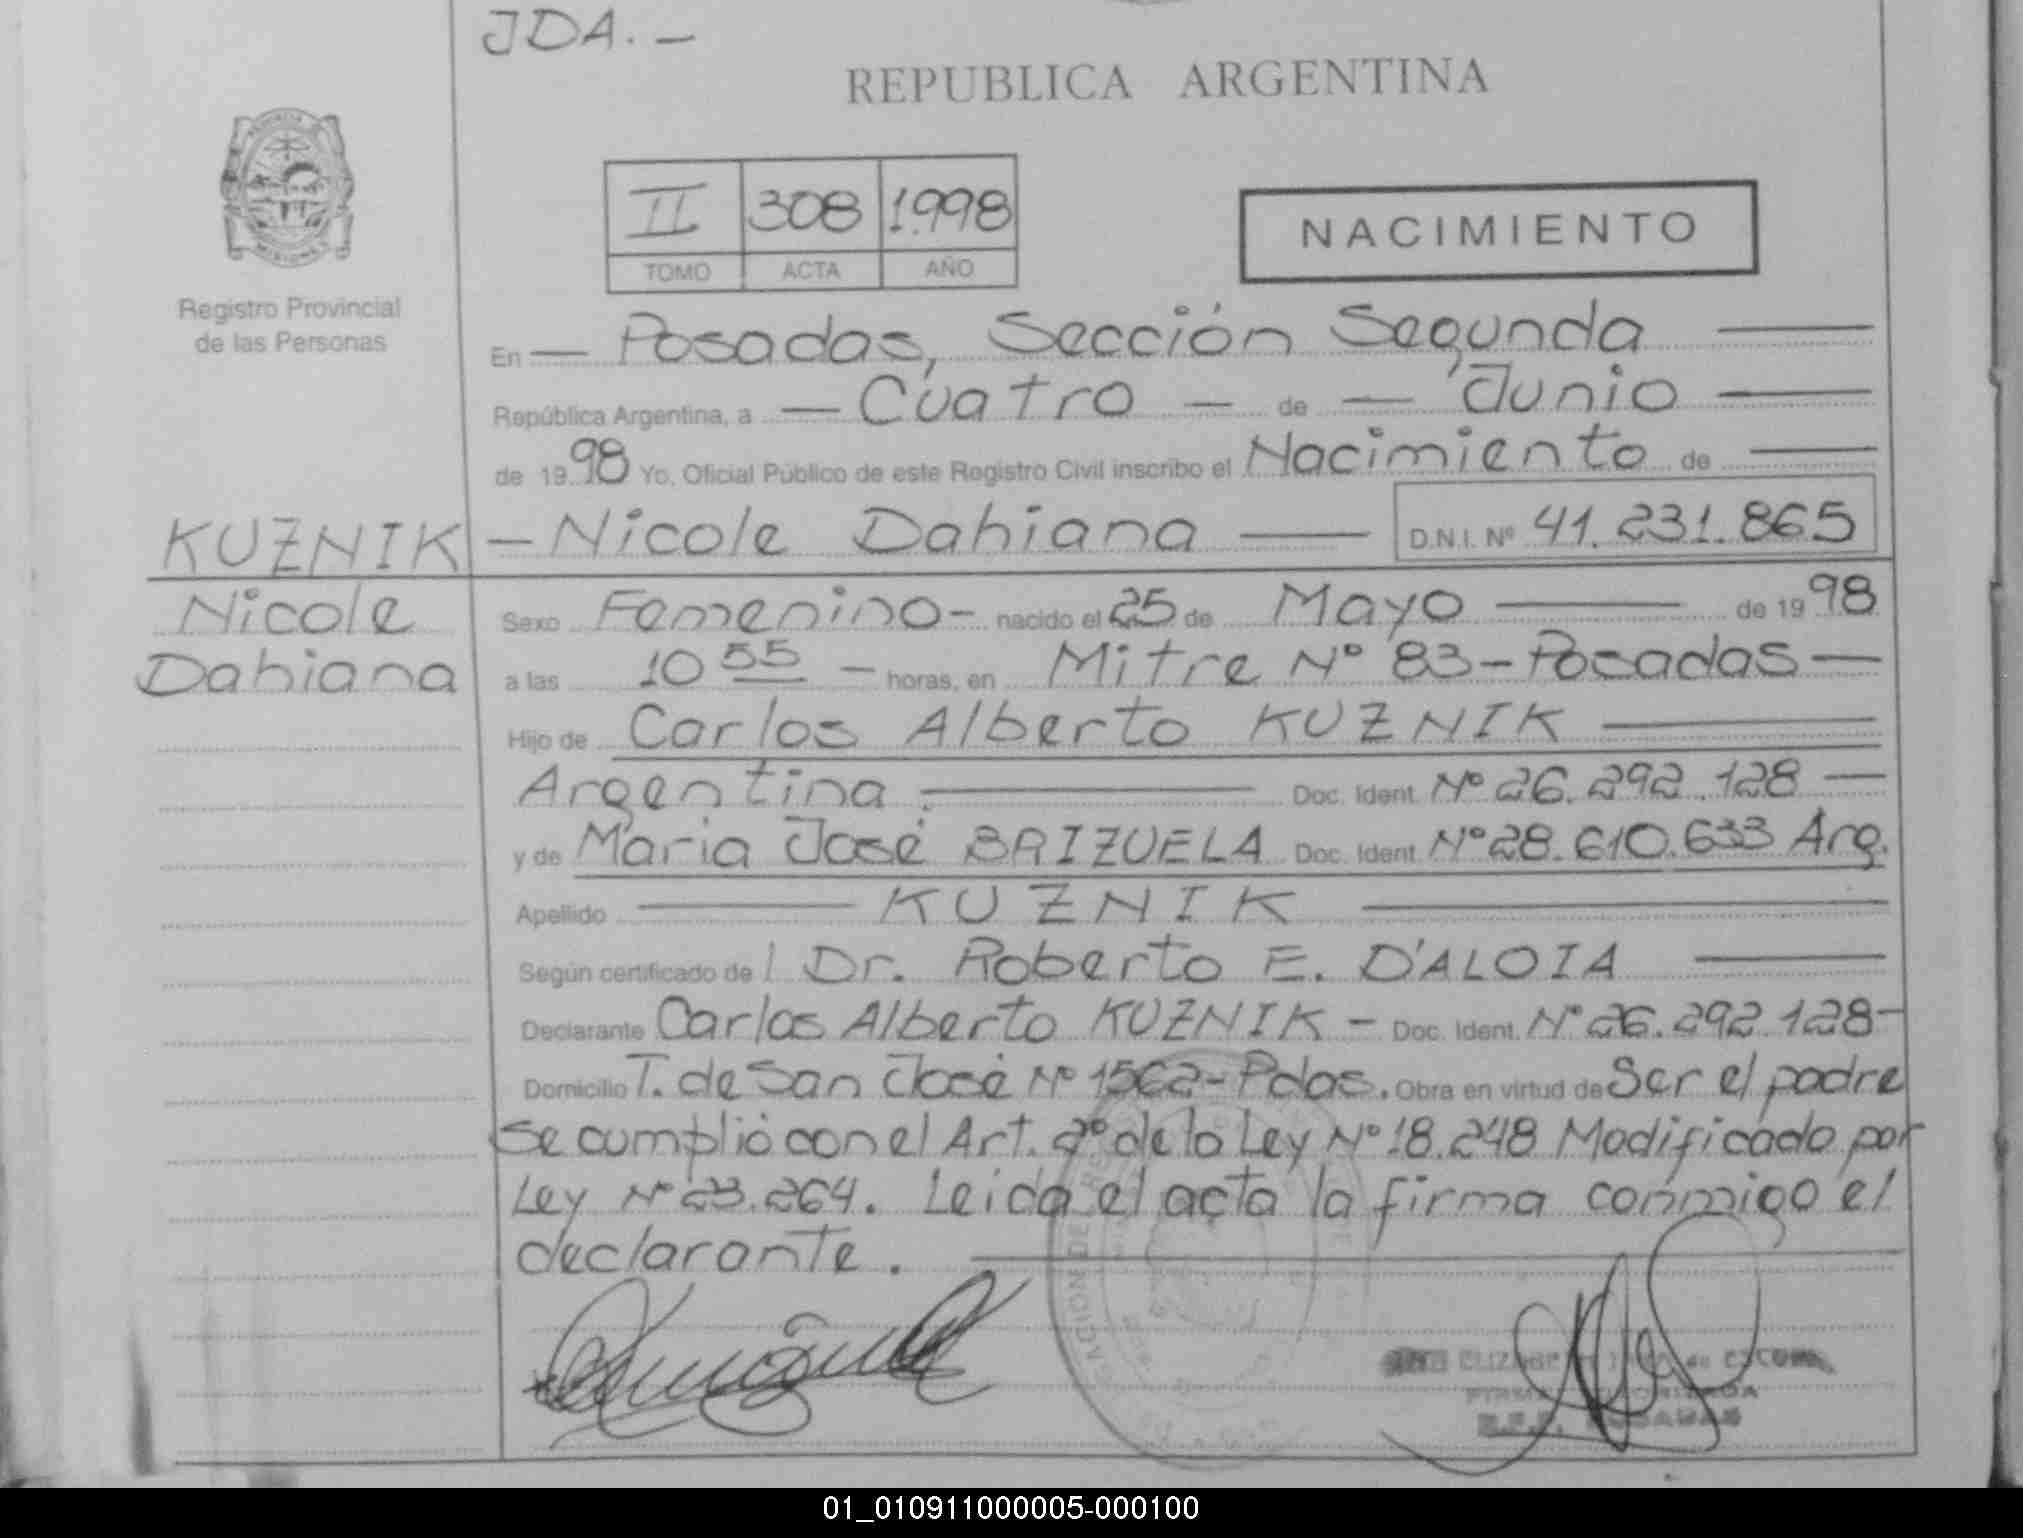 JDA. –
REPUBLICA ARGENTINA
II 308 1.998
TOMO ACTA AÑO
NACIMIENTO
Registro Provincial
de las Personas
En — Posadas, Sección Segunda —
República Argentina, a — Cuatro — de — Junio —
de 19 98 Yo, Oficial Público de este Registro Civil inscribo el Nacimiento de —
KUZNIK
Nicole
Dahiana
– Nicole Dahiana — D.N.I. Nº 41.231.865
Sexo Femenino – nacido el 25 de Mayo — de 19 98
a las 10 55 – horas, en Mitre Nº 83 – Posadas —
Hijo de Carlos Alberto KUZNIK —
Argentina. — Doc. Ident. Nº 26.292.128 —
y de Maria José BRIZUELA Doc. Ident. Nº 28.610.633 Arg.
Apellido — KUZNIK —
Según certificado de Dr. Roberto E. D'ALOIA —
Declarante Carlos Alberto KUZNIK – Doc. Ident. Nº 26.292.128 –
Domicilio T. de San José Nº 1562 – Pdas. Obra en virtud de Ser el padre
se cumplió con el Art. 2º de la Ley Nº 18.248 Modificado por
Ley Nº 23.264. Leida el acta la firma conmigo el
declarante. —
POSADAS
01_010911000005-000100